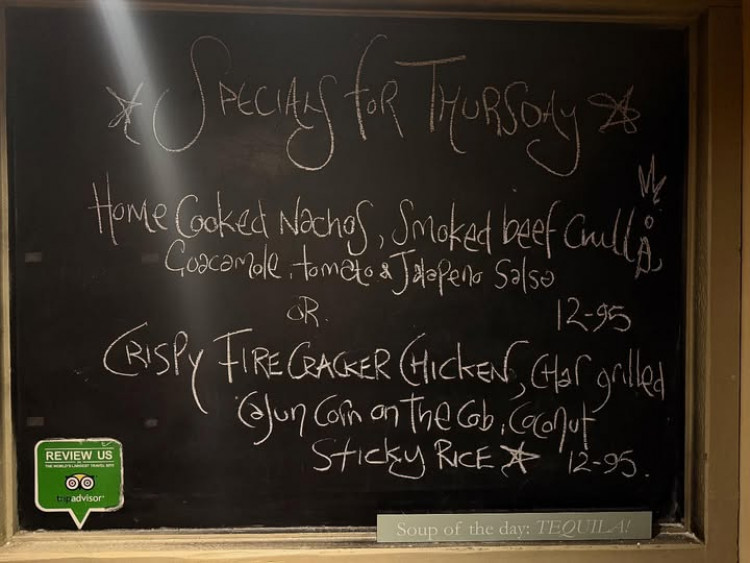 SPECIALS FOR THURSDAY
Home Cooked Nachos, Smoked beef Chilli
Guacamole, tomato & Jalapeno Salsa
OR. 12-95
CRISPY FIRECRACKER CHICKEN, Char grilled
Cajun Corn on The Cob, Coconut
STICKY RICE 12-95.
REVIEW US
ON
THE WORLD'S LARGEST TRAVEL SITE
tripadvisor®
Soup of the day: TEQUILA!